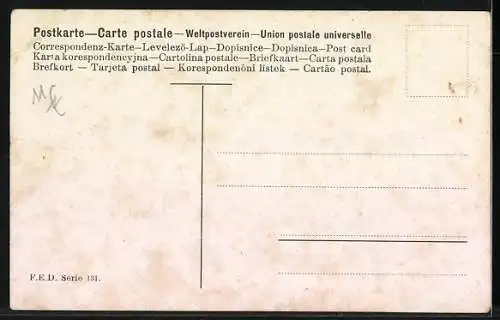 Postkarte—Carte postale—Weltpostverein—Union postale universelle
Correspondenz-Karte—Levelező-Lap—Dopisnice—Dopisnica—Post card
Karta korespondencyjna—Cartolina postale—Briefkaart—Carta postala
Brefkort — Tarjeta postal — Korespondenční lístek — Cartão postal.
F.E.D. Série 131.